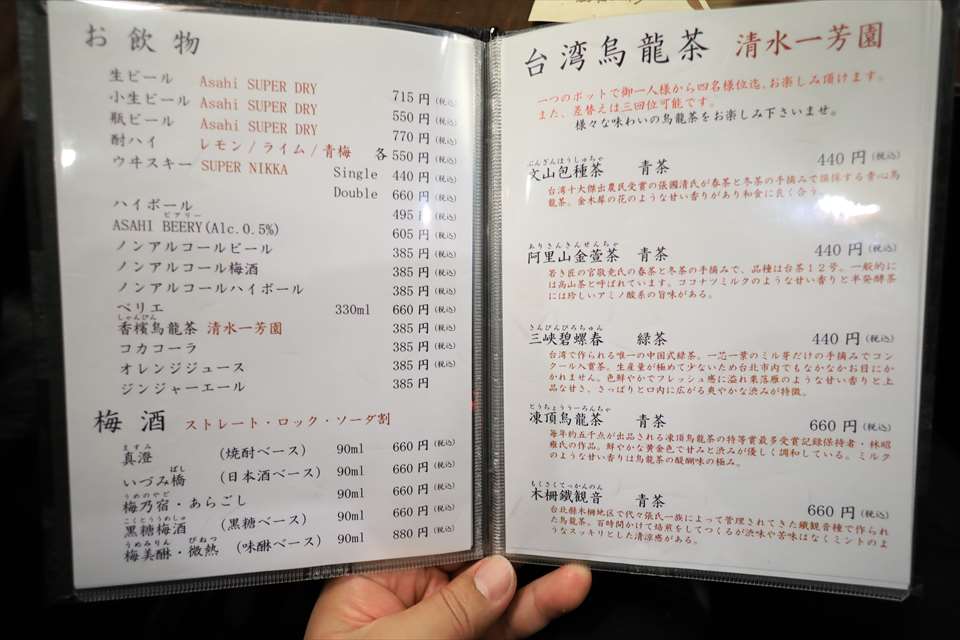 お飲物
生ビール Asahi SUPER DRY 715円(税込)
小生ビール Asahi SUPER DRY 550円(税込)
瓶ビール Asahi SUPER DRY 770円(税込)
酎ハイ レモン/ライム/青梅 各550円(税込)
ウヰスキー SUPER NIKKA Single 440円(税込)
Double 660円(税込)
ハイボール 495円(税込)
ビアリー
ASAHI BEERY(Alc.0.5%) 605円(税込)
ノンアルコールビール 385円(税込)
ノンアルコール梅酒 385円(税込)
ノンアルコールハイボール 385円(税込)
ペリエ 330ml 660円(税込)
しゃんぴん
香檳烏龍茶 清水一芳園 385円(税込)
コカコーラ 385円(税込)
オレンジジュース 385円(税込)
ジンジャーエール 385円
梅酒 ストレート・ロック・ソーダ割
ますみ
真澄 (焼酎ベース) 90ml 660円(税込)
ばし
いづみ橋 (日本酒ベース) 90ml 660円(税込)
うめのやど
梅乃宿・あらごし 90ml 660円(税込)
こくとううめしゅ
黒糖梅酒 (黒糖ベース) 90ml 660円(税込)
うめみりん びねつ
梅美醂・微熱 (味醂ベース) 90ml 880円(税込)
台湾烏龍茶 清水一芳園
一つのポットで御一人様から四名様位迄、お楽しみ頂けます。
また、差替えは三回位可能です。
様々な味わいの烏龍茶をお楽しみ下さいませ。
ぶんざんほうしゅちゃ
文山包種茶 青茶 440円(税込)
台湾十大傑出農民受賞の張國清氏が春茶と冬茶の手摘みで撰採する青心烏
龍茶。金木犀の花のような甘い香りがあり和食に良く合う
ありさんきんせんちゃ
阿里山金萱茶 青茶 440円(税込)
若き匠の官敬堯氏の春茶と冬茶の手摘みで、品種は台茶12号。一般的に
は高山茶と呼ばれています。ココナツミルクのような甘い香りと半発酵茶
には珍しいアミノ酸系の旨味がある。
さんぴんぴろちゅん
三峡碧螺春 緑茶 440円(税込)
台湾で作られる唯一の中国式緑茶。一芯一葉のミル芽だけの手摘みでコン
クール入賞茶。生産量が極めて少ないため台北市内でもなかなかお目にか
かれません。色鮮やかでフレッシュ感に溢れ栗落雁のような甘い香りと上
品な甘さ、さっぱりと口内に広がる爽やかな渋みが特徴。
とうちょううーろんちゃ
凍頂烏龍茶 青茶 660円(税込)
毎年約五千点が出品される凍頂烏龍茶の特等賞最多受賞記録保持者・林昭
雍氏の作品。鮮やかな黄金色で甘みと渋みが優しく調和している。ミルク
のような甘い香りは烏龍茶の醍醐味の極み。
もくさくてっかんのん
木柵鐵観音 青茶 660円(税込)
台北縣木柵地区で代々張氏一族によって管理されてきた鐵観音種で作られ
た烏龍茶。百時間かけて焙煎をしてつくるが渋味や苦味はなくミントのよ
うなスッキリとした清涼感がある。